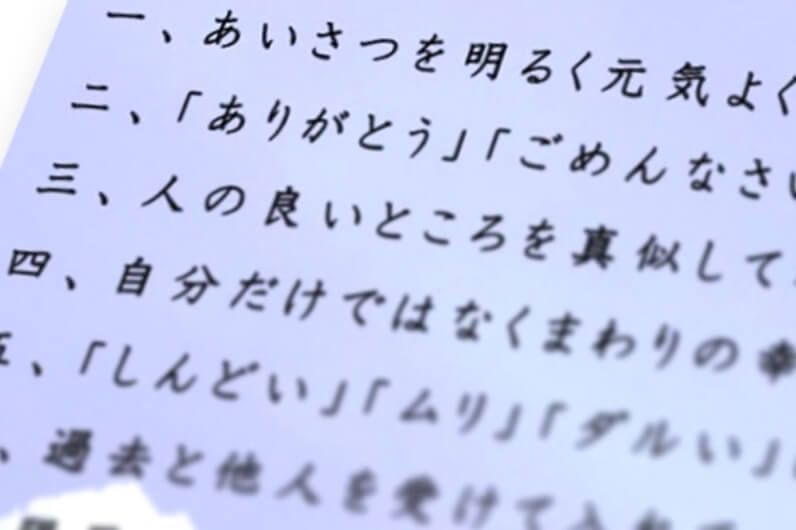 一、あいさつを明るく元気よく
二、「ありがとう」「ごめんなさい
三、人の良いところを真似して
四、自分だけではなくまわりの幸
五、「しんどい」「ムリ」「ダルい」
、過去と他人を受け入れ